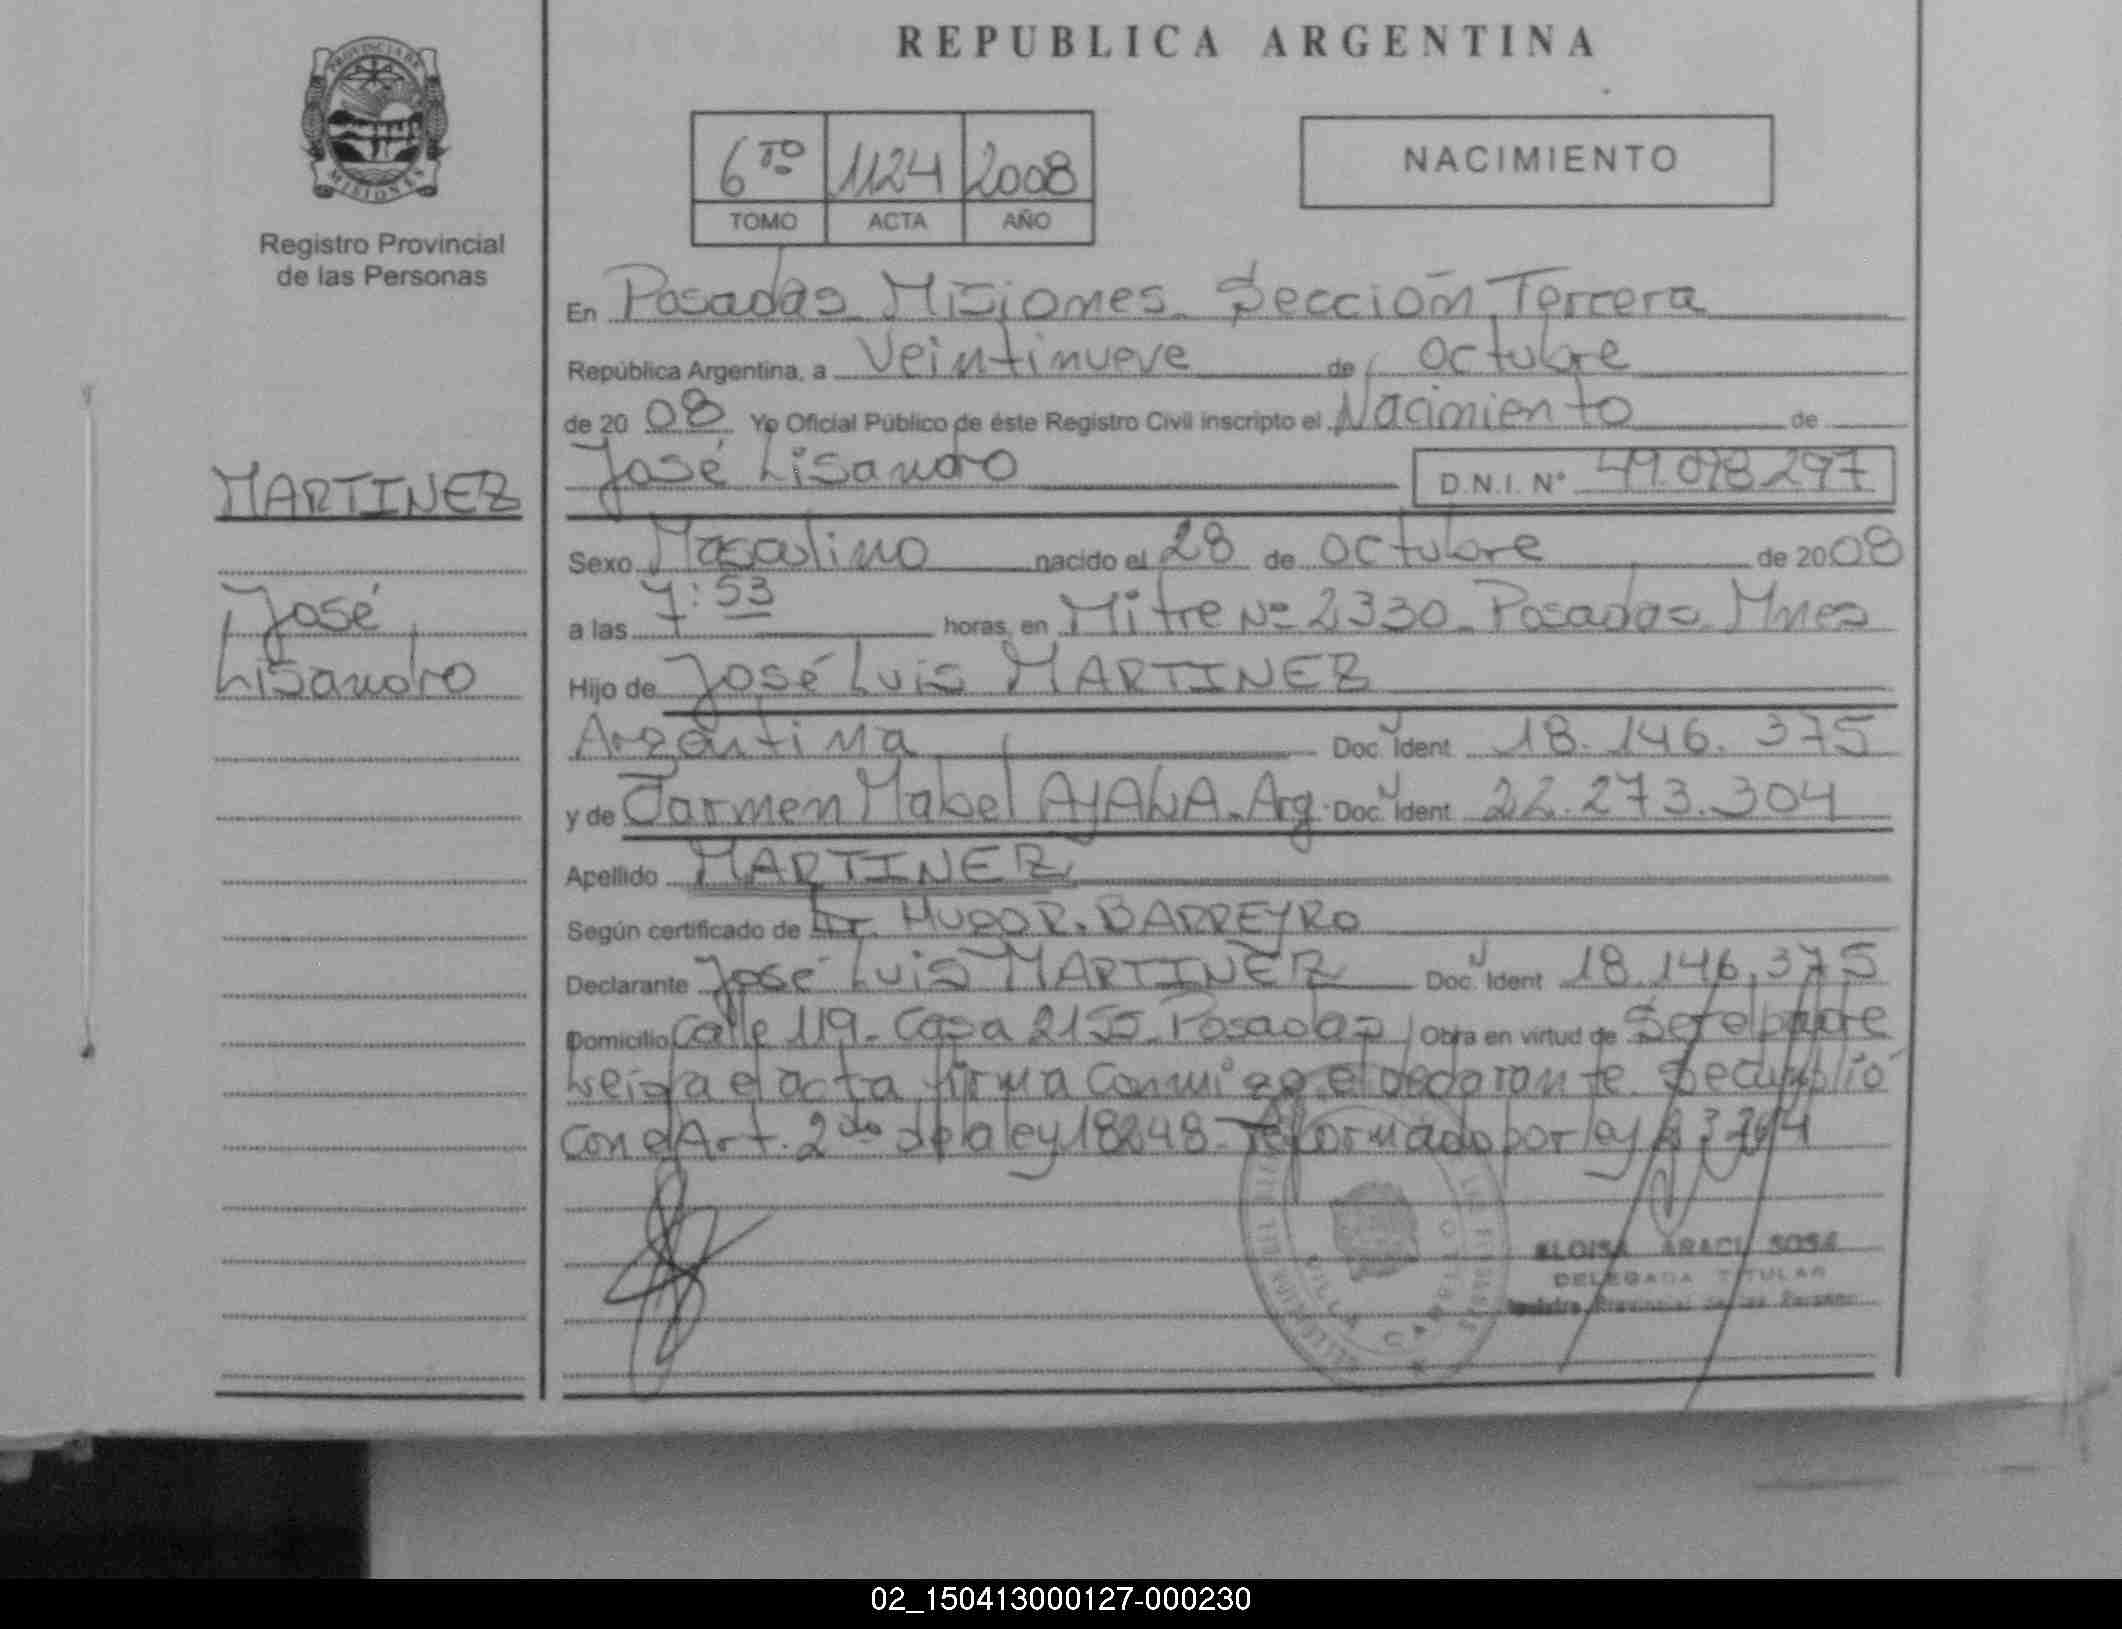 REPUBLICA ARGENTINA
PROVINCIA DE
MISIONES
Registro Provincial
de las Personas
6TO 1124 2008
TOMO ACTA AÑO
NACIMIENTO
En Posadas Misiones Sección Tercera
República Argentina, a Veintinueve de Octubre
de 20 08 Yo Oficial Público de éste Registro Civil inscripto el Nacimiento de
José Lisandro D.N.I. Nº 49.098.297
MARTINEZ
José
Lisandro
Sexo Masculino nacido el 28 de octubre de 2008
a las 7:53 horas, en Mitre Nº 2330 Posadas Mnes
Hijo de José Luis MARTINEZ
Argentina Doc. Ident 18.146.375
y de Carmen Mabel AYALA. Arg. Doc. Ident 22.273.304
Apellido MARTINEZ
Según certificado de Dr. HUGO R. BARREYRO
Declarante José Luis MARTINEZ Doc. Ident 18.146.375
Domicilio Calle 119 - Casa 2155 - Posadas Obra en virtud de Ser el padre
Leida el acta firma conmigo el declarante. Se cumplió
con el Art. 2do de la ley 18248 - reformado por ley
VILLA CABELLO
ELOISA ARACI SOSA
DELEGADA TITULAR
Registro Provincial de las Personas
02_150413000127-000230